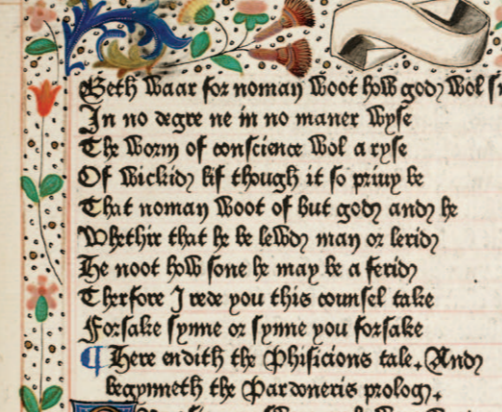 Beth waar for noman woot how god wol
In no degre ne in no maner wyſe
The worm of conſcience wol a ryſe
Of wickid lif though it ſo priuy be
That noman woot of but god and he
Whethir that he be lewd man or lerid
He noot how ſone he may be a ferid
Therfore I rede you this counſel take
Forſake ſynne or ſynne you forſake
¶ Here endith the Phiſicions tale. And
begynneth the Pardoneris prolog.